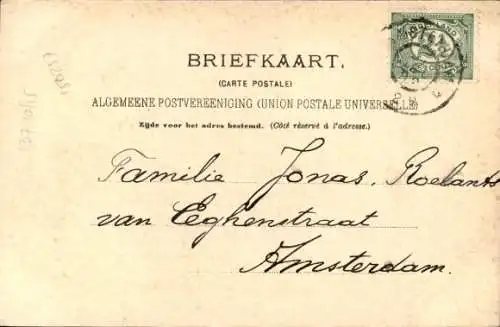 BRIEFKAART.
(CARTE POSTALE)
ALGEMEENE POSTVEREENIGING (UNION POSTALE UNIVERSELLE)
Zijde voor het adres bestemd. (Côté réservé à l'adresse.)
Familie Jonas. Roelants
van Eeghenstraat
Amsterdam.